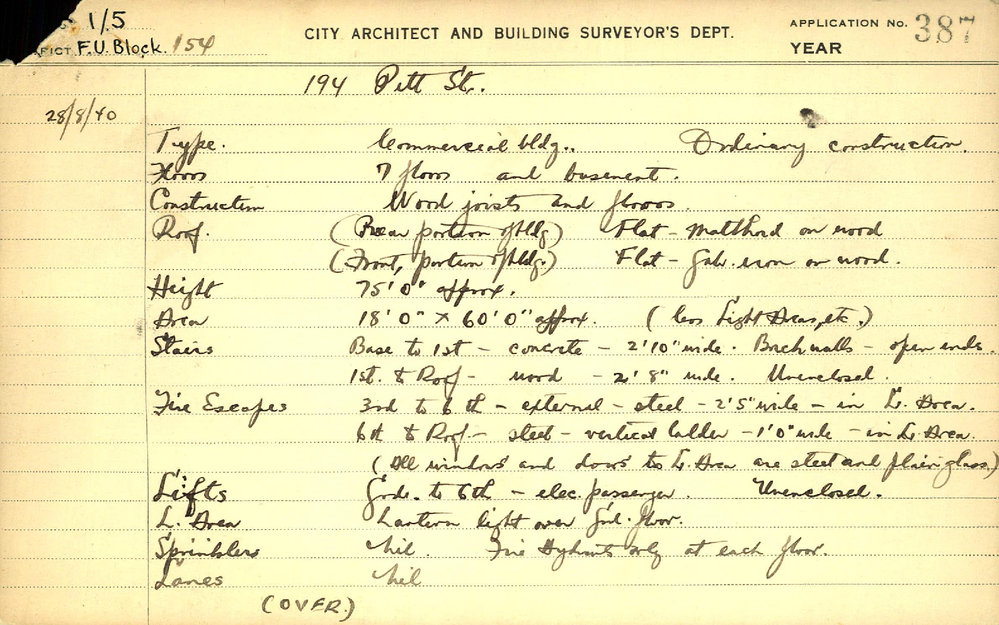 1/5
F.U. Block. 154
CITY ARCHITECT AND BUILDING SURVEYOR'S DEPT.
APPLICATION No. 387
YEAR
194 Pitt St.
28/8/40
Type. Commercial bldg.. Ordinary construction.
Floors 7 floors and basement.
Construction Wood joists and floors.
Roof. (Rear portion of bldg) Flat - Malthoid on wood
(Front, portion of bldg.) Flat - Galv. iron on wood.
Height 75'0" approx.
Area 18'0" x 60'0" approx. (less Light Areas, etc.)
Stairs Base to 1st - concrete - 2'10" wide. Brick walls - open ends.
1st. to Roof - wood - 2'8" wide. Unenclosed.
Fire Escapes 3rd to 6th - external - steel - 2'5" wide - in L. Area.
6th to Roof - steel - vertical ladder - 1'0" wide - in L. Area.
(All windows and doors to L. Area are steel and plain glass.)
Lifts Grd. to 6th - elec. passenger. Unenclosed.
L. Area Lantern light over Grd. floor.
Sprinklers Nil. Fire Hydrants only at each floor.
Lanes Nil
(OVER.)